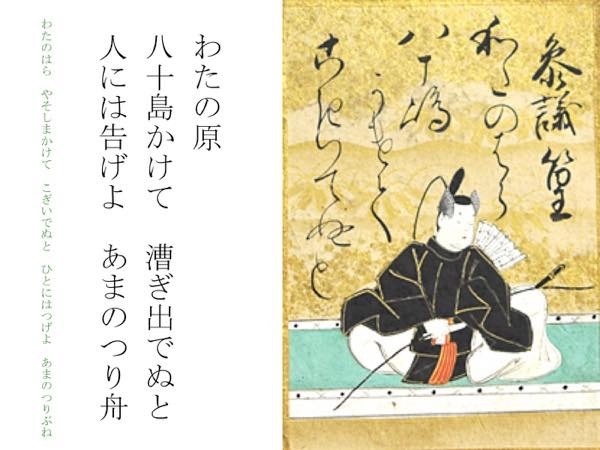 参議篁
和たのはら
八十嶋
かけて
こぎいでぬと
わたの原
八十島かけて　漕ぎ出でぬと
人には告げよ　あまのつり舟
わたのはら　やそしまかけて　こぎいでぬと　ひとにはつげよ　あまのつりぶね